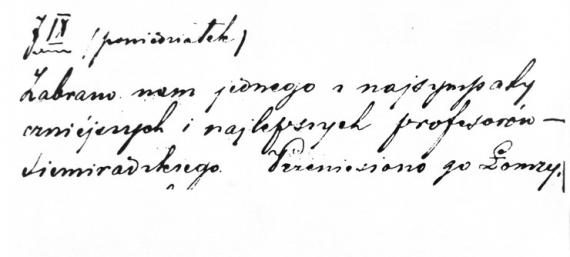 7 IX (poniedziałek)
Zabrano nam jednego z najsympaty
czniejszych i najlepszych profesorów –
Siemiradzkiego. Przeniesiono go Łomży.